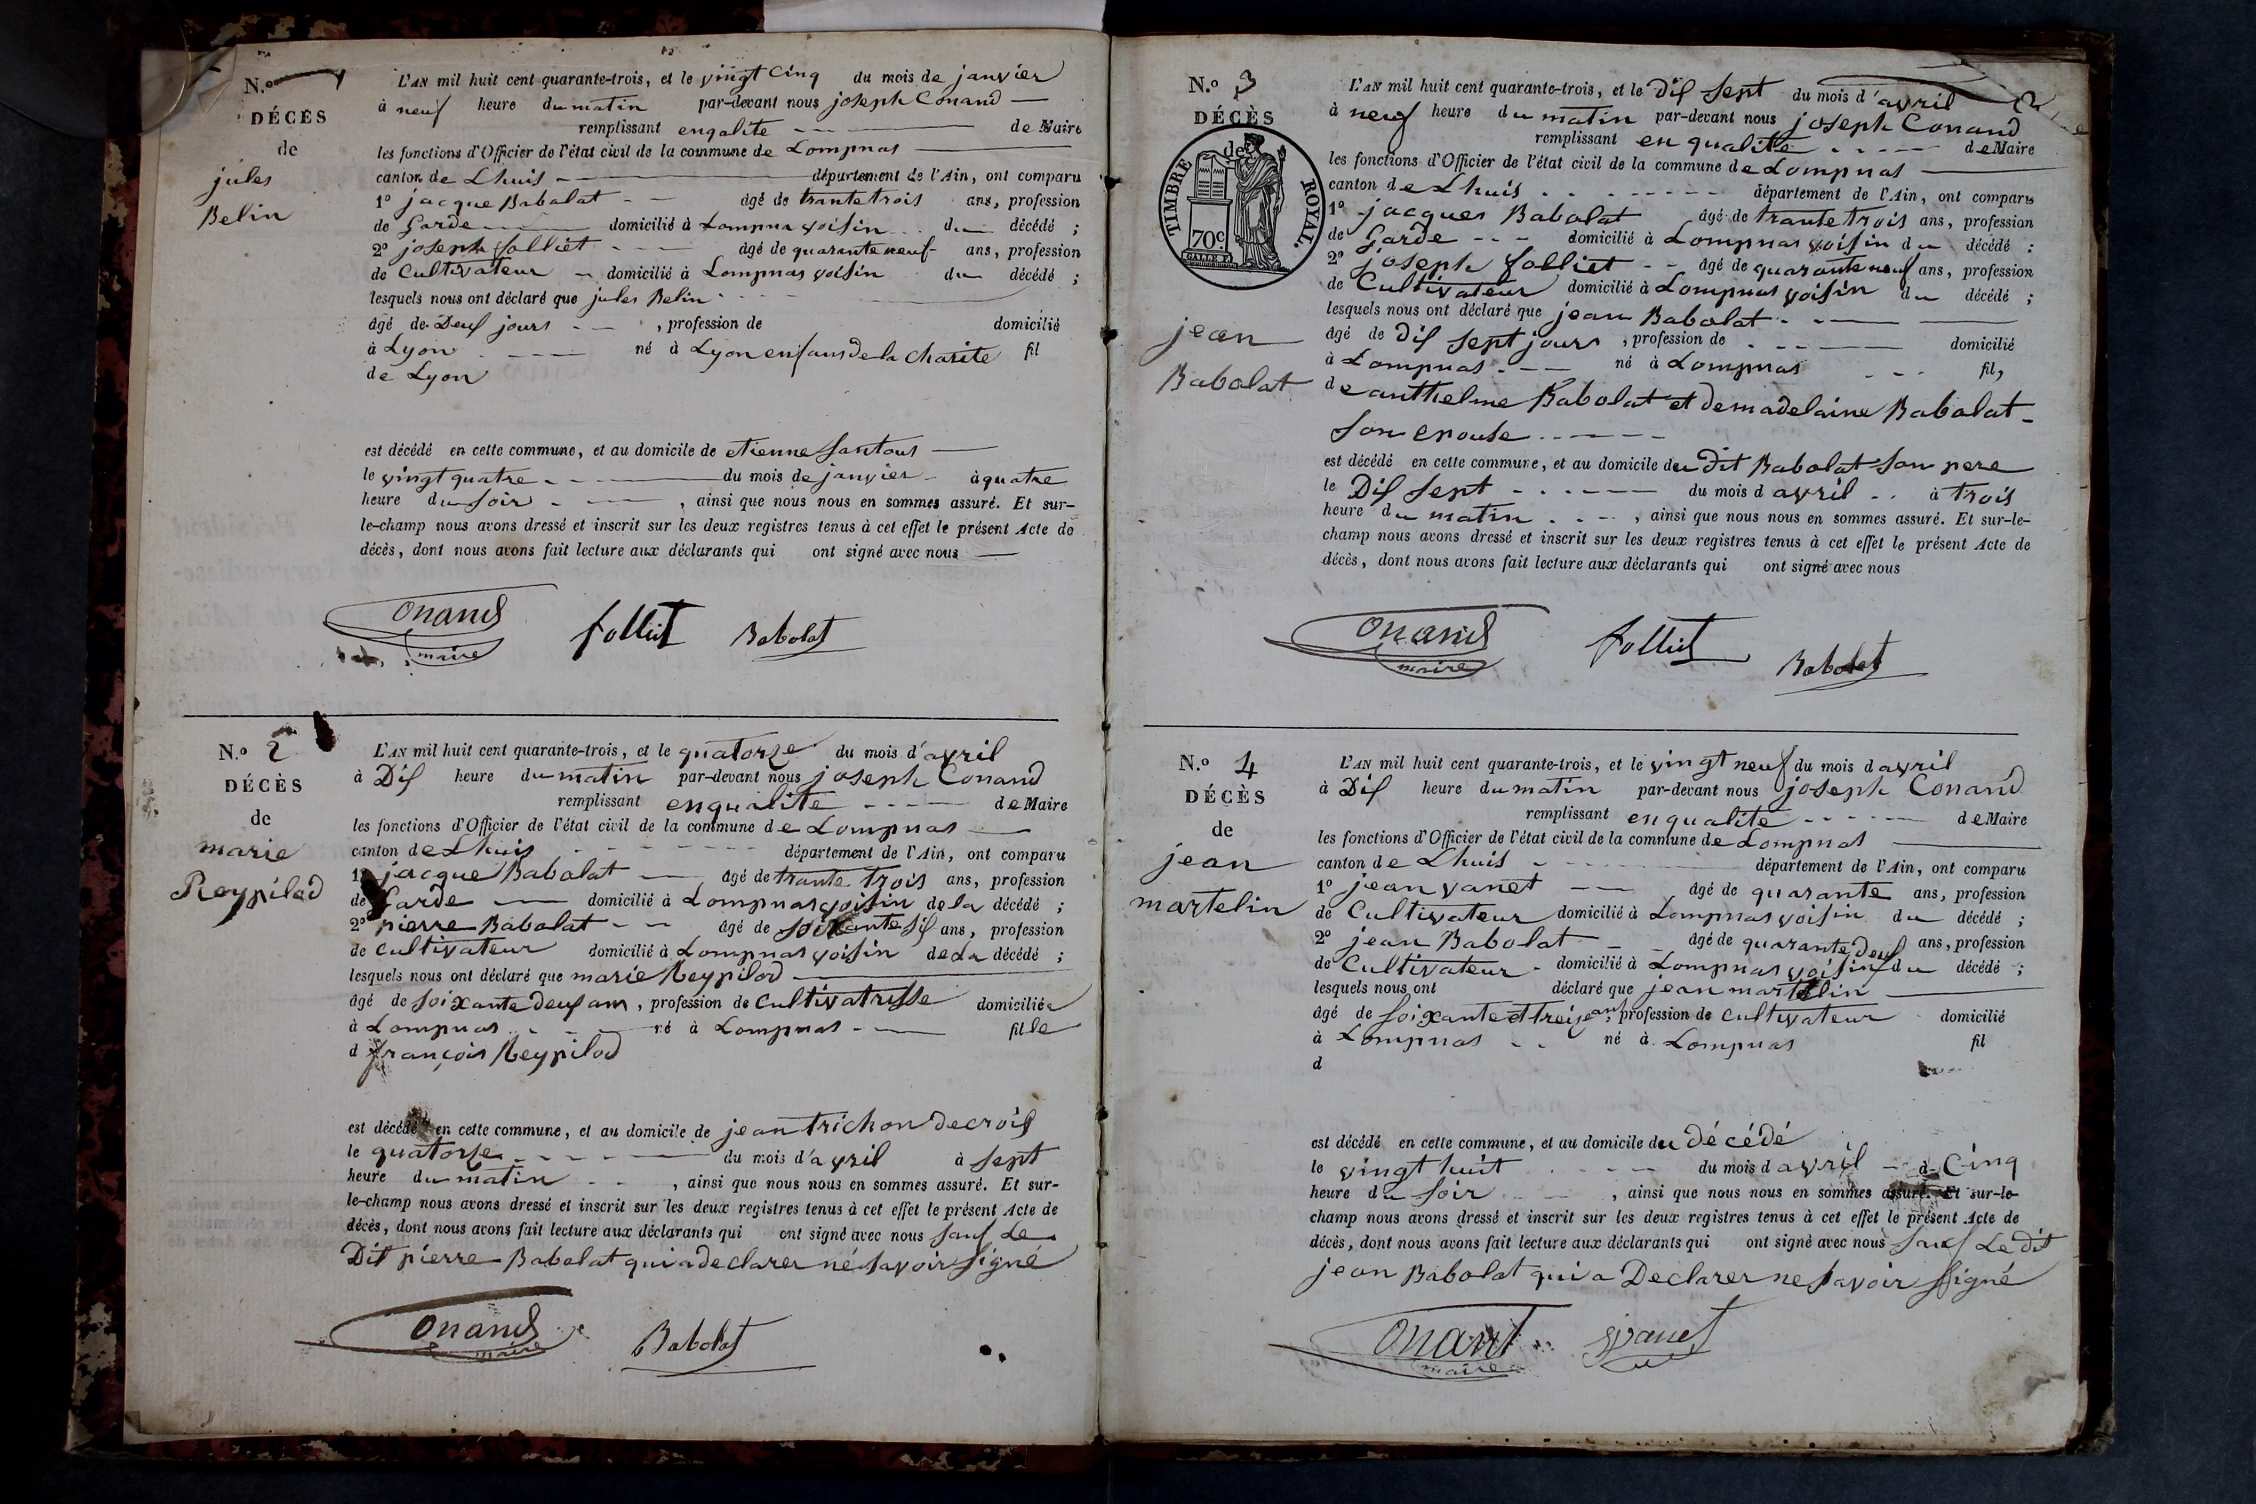 N.o 1
DÉCÈS
de
jules
Belin
L'AN mil huit cent quarante-trois, et le vingt cinq du mois de janvier
à neuf heure du matin par-devant nous joseph Conand
remplissant en qalite de Maire
les fonctions d'Officier de l'état civil de la commune de Lompnas
canton de Lhuis département de l'Ain, ont comparu
1º jacque Babolat âgé de trante trois ans, profession
de Garde domicilié à Lompna voisin du décédé ;
2º joseph folliet âgé de quarante neuf ans, profession
de Cultivateur domicilié à Lompnas voisin du décédé ;
lesquels nous ont déclaré que jules Belin
âgé de Deuf jours , profession de domicilié
à Lyon né à Lyon enfans de la charite fil
de Lyon
est décédé en cette commune, et au domicile de etienne
le vingt quatre du mois de janvier à quatre
heure du soir , ainsi que nous nous en sommes assuré. Et sur-
le-champ nous avons dressé et inscrit sur les deux registres tenus à cet effet le présent Acte de
décès, dont nous avons fait lecture aux déclarants qui ont signé avec nous
Conand folliet Babolat
maire
N.o 2
DÉCÈS
de
marie
Reypilod
L'AN mil huit cent quarante-trois, et le quatorze du mois d'avril
à Dif heure du matin par-devant nous joseph Conand
remplissant en qualite de Maire
les fonctions d'Officier de l'état civil de la commune de Lompnas
canton de Lhuis département de l'Ain, ont comparu
1º jacque Babolat âgé de trante trois ans, profession
de Garde domicilié à Lompnas voisin de la décédé ;
2º pierre Babolat âgé de soixante sif ans, profession
de cultivateur domicilié à Lompnas voisin de La décédé ;
lesquels nous ont déclaré que marie Reypilod
âgé de soixante deuf ans, profession de Cultivatrisse domiciliée
à Lompnas né à Lompnas fille
d françois Reypilod
est décédé en cette commune, et au domicile de jean trichon decroif
le quatorze du mois d'avril à sept
heure du matin , ainsi que nous nous en sommes assuré. Et sur-
le-champ nous avons dressé et inscrit sur les deux registres tenus à cet effet le présent Acte de
décès, dont nous avons fait lecture aux déclarants qui ont signé avec nous sauf Le
Dit pierre Babolat qui a declarer né savoir signé
Conand Babolat
maire
2
N.o 3
DÉCÈS
de
TIMBRE ROYAL.
70c
jean
Babolat
L'AN mil huit cent quarante-trois, et le Dif sept du mois d'avril
à neuf heure du matin par-devant nous joseph Conand
remplissant en qualite de Maire
les fonctions d'Officier de l'état civil de la commune de Lompnas
canton de Lhuis département de l'Ain, ont comparu
1º jacques Babolat âgé de trante trois ans, profession
de Garde domicilié à Lompnas voisin du décédé ;
2º joseph folliet âgé de quarante neuf ans, profession
de Cultivateur domicilié à Lompnas voisin du décédé ;
lesquels nous ont déclaré que jean Babolat
âgé de dif sept jours , profession de domicilié
à Lompnas né à Lompnas fil,
de anthelme Babolat et de madelaine Babolat
son epouse
est décédé en cette commune, et au domicile du Dit Babolat son pere
le Dif sept du mois d avril à trois
heure du matin , ainsi que nous nous en sommes assuré. Et sur-le-
champ nous avons dressé et inscrit sur les deux registres tenus à cet effet le présent Acte de
décès, dont nous avons fait lecture aux déclarants qui ont signé avec nous
Conand folliet Babolat
maire
N.o 4
DÉCÈS
de
jean
martelin
L'AN mil huit cent quarante-trois, et le vingt neuf du mois d avril
à Dif heure du matin par-devant nous joseph Conand
remplissant en qualite de Maire
les fonctions d'Officier de l'état civil de la commune de Lompnas
canton de Lhuis département de l'Ain, ont comparu
1º jean vanet âgé de quarante ans, profession
de Cultivateur domicilié à Lompnas voisin du décédé ;
2º jean Babolat âgé de quarante deuf ans, profession
de Cultivateur domicilié à Lompnas voisin du décédé ;
lesquels nous ont déclaré que jean martelin
âgé de soixante et treize ans, profession de cultivateur domicilié
à Lompnas né à Lompnas fil
d
est décédé en cette commune, et au domicile du décédé
le vingt huit du mois d avril à Cinq
heure du soir , ainsi que nous nous en sommes assuré. Et sur-le-
champ nous avons dressé et inscrit sur les deux registres tenus à cet effet le présent Acte de
décès, dont nous avons fait lecture aux déclarants qui ont signé avec nous sauf Le dit
jean Babolat qui a Declarer ne savoir signé
Conant vanet
maire